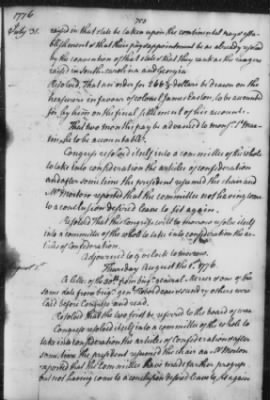 1776
July 31.
raised in that state be taken upon the continental new establishment
& that the pay & appointment be as already voted
by the convention of that state & that they rank as the rangers
raised in South Carolina and Georgia
Resolved, That an order for 266 2/3 dollars be drawn on the
treasurers in favour of colonel James Easton, to be accounted
for by him on the final settlement of his accounts.
That two months pay be advanced to mons.r
he to be accountable.
Congress resolved itself into a committee of the whole
to take into consideration the articles of confederation
and after some time the president resumed the chair and
Mr Morton reported that the committee not having come
to a conclusion desired leave to sit again.
Resolved That this Congress will to morrow resolve itself
into a committee of the whole to take into consideration the articles
of Confederation.
Adjourned to 9 o clock to morrow.
Thursday August the 1.st 1776.
August 1
A letter of the 30.th from brig.r general Mercer & one of the
same date from brig.r gen.l Roberdeau & sundry others were
laid before Congress and read.
Resolved That the two first be referred to the board of war
Congress resolved itself into a committee of the whole to
take into consideration the articles of Confederation & after
some time the president resumed the chair and Mr Morton
reported that the Committee have made farther progress
but not having come to a conclusion desired leave to sit again